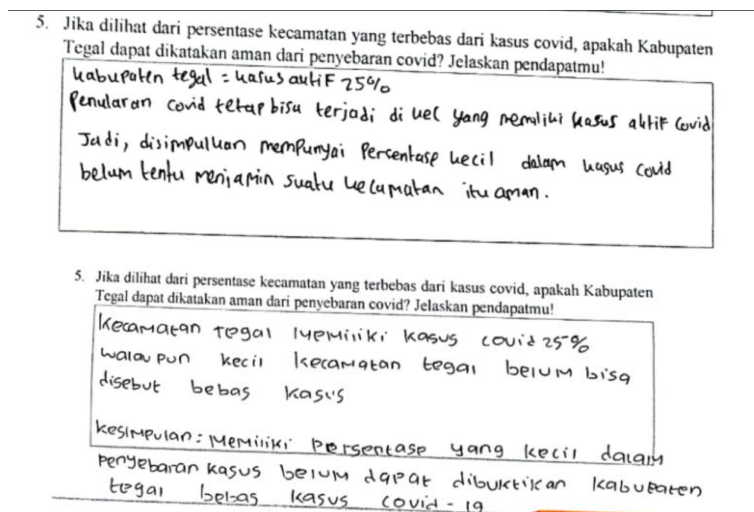 5. Jika dilihat dari persentase kecamatan yang terbebas dari kasus covid, apakah Kabupaten
Tegal dapat dikatakan aman dari penyebaran covid? Jelaskan pendapatmu!
Kabupaten tegal = kasus aktif 25%
Penularan covid tetap bisa terjadi di kec yang memiliki kasus aktif covid
Jadi, disimpulkan mempunyai persentase kecil dalam kasus covid
belum tentu menjamin suatu kecamatan itu aman.
5. Jika dilihat dari persentase kecamatan yang terbebas dari kasus covid, apakah Kabupaten
Tegal dapat dikatakan aman dari penyebaran covid? Jelaskan pendapatmu!
Kecamatan tegal memiliki kasus covid 25%
walau pun kecil kecamatan tegal belum bisa
disebut bebas kasus
kesimpulan: Memiliki persentase yang kecil dalam
penyebaran kasus belum dapat dibuktikan kabupaten
tegal bebas kasus covid-19